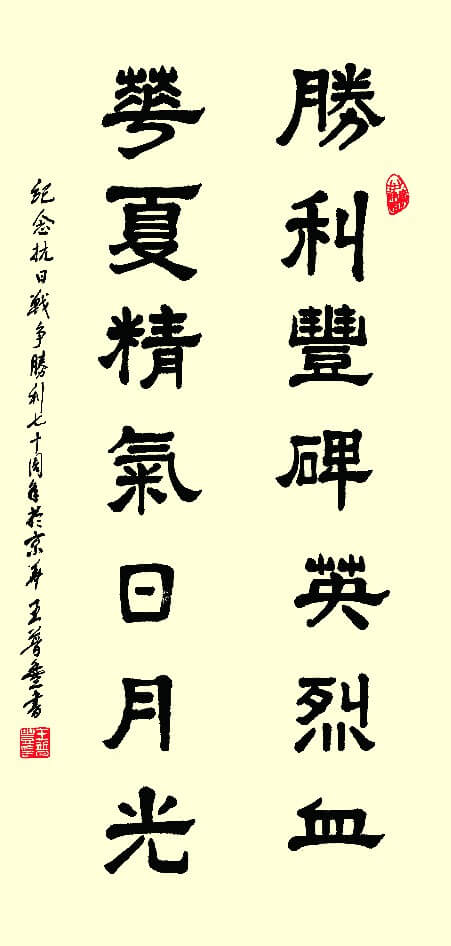 勝利豐碑英烈血
華夏精氣日月光
紀念抗日戰爭勝利七十周年於京華王普豐書